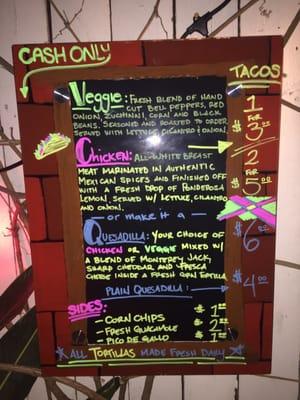 CASH ONLY
TACOS
Veggie: FRESH BLEND OF HAND
CUT BELL PEPPERS, RED
ONION, ZUCCHINNI, CORN AND BLACK
BEANS. SEASONED AND ROASTED TO ORDER
SERVED WITH LETTUCE, CILANTRO & ONION.
1
$ 3.00
CHICKEN: ALL WHITE BREAST
MEAT MARINATED IN AUTHENTIC
MEXICAN SPICES AND FINISHED OFF
WITH A FRESH DROP OF PONDEROSA
LEMON. SERVED W/ LETTUCE, CILANTRO
AND ONION.
2
$ 5.00
— OR MAKE IT A —
QUESADILLA: YOUR CHOICE OF
CHICKEN OR VEGGIE MIXED W/
A BLEND OF MONTEREY JACK,
SHARP CHEDDAR AND FRESCA
CHEESE INSIDE A FRESH CORN TORTILLA
$ 6.00
PLAIN QUESADILLA:
$ 4.00
SIDES:
– CORN CHIPS $ 1.00
– FRESH GUACAMOLE $ 2.00
– PICO DE GALLO $ 1.00
ALL TORTILLAS MADE FRESH DAILY